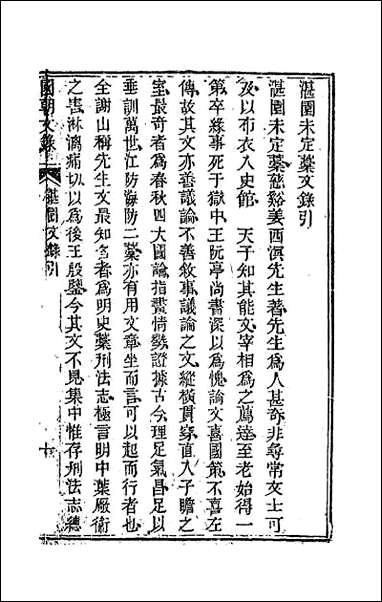 湛園未定藁文錄引
湛園未定藁慈谿姜西溟先生著先生爲人甚奇非尋常文士可
及以布衣入史館　天子知其能文宰相爲之薦達至老始得一
第卒緣事死于獄中王阮亭尚書深以爲愧論文喜國策不喜左
傳故其文亦善議論不善敘事議論之文縱橫貫穿直入子瞻之
室最奇者爲春秋四大國論指畫情勢證據古今理足氣昌足以
垂訓萬世江防海防二藁亦有用文章坐而言可以起而行者也
全謝山稱先生文最知名者爲明史藁刑法志極言明中葉廠衛
之害淋漓痛切以爲後王殷鑒今其文不見集中惟存刑法志總
國朝文錄
湛園文錄引
十